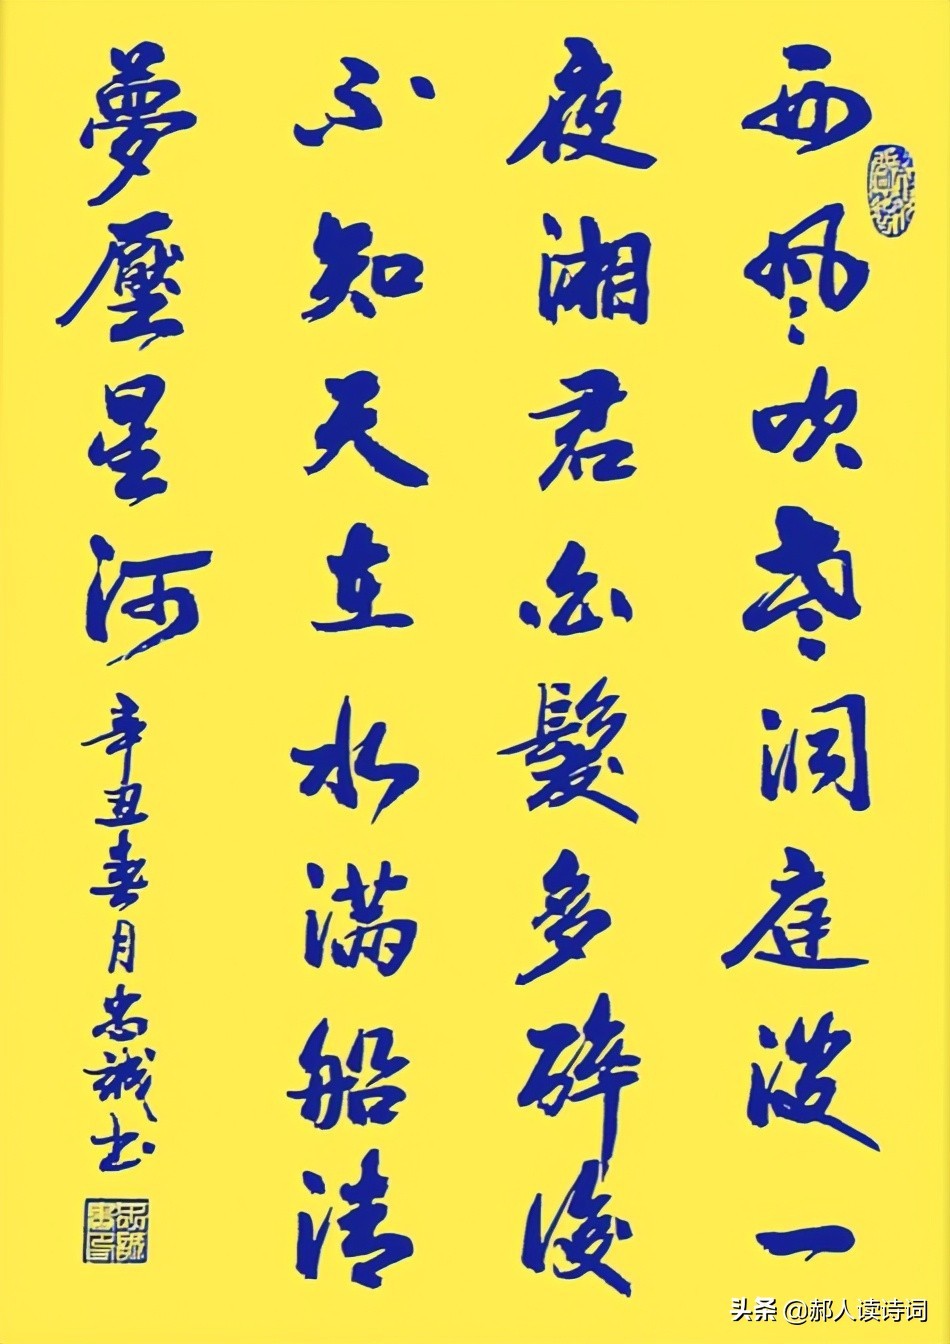 西风吹老洞庭波一
夜湘君白髮多醉後
不知天在水满船清
夢壓星河
辛丑春月忠誠书
头条 @郝人读诗词